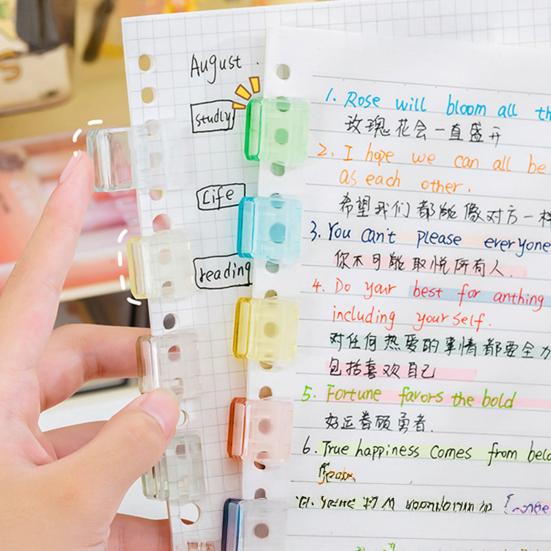 August
studly
Life
reading
1. Rose will bloom all th
玫瑰花会一直盛开
2. I hope we can all be
as each other.
希望我们都能像对方一样
3. You can't please everyone
你不可能取悦所有人.
4. Do your best for anthing
including yourself.
对任何热爱的事情都要全力
包括喜欢自己
5. Fortune favors the bold
好运眷顾勇者.
6. True happiness comes from